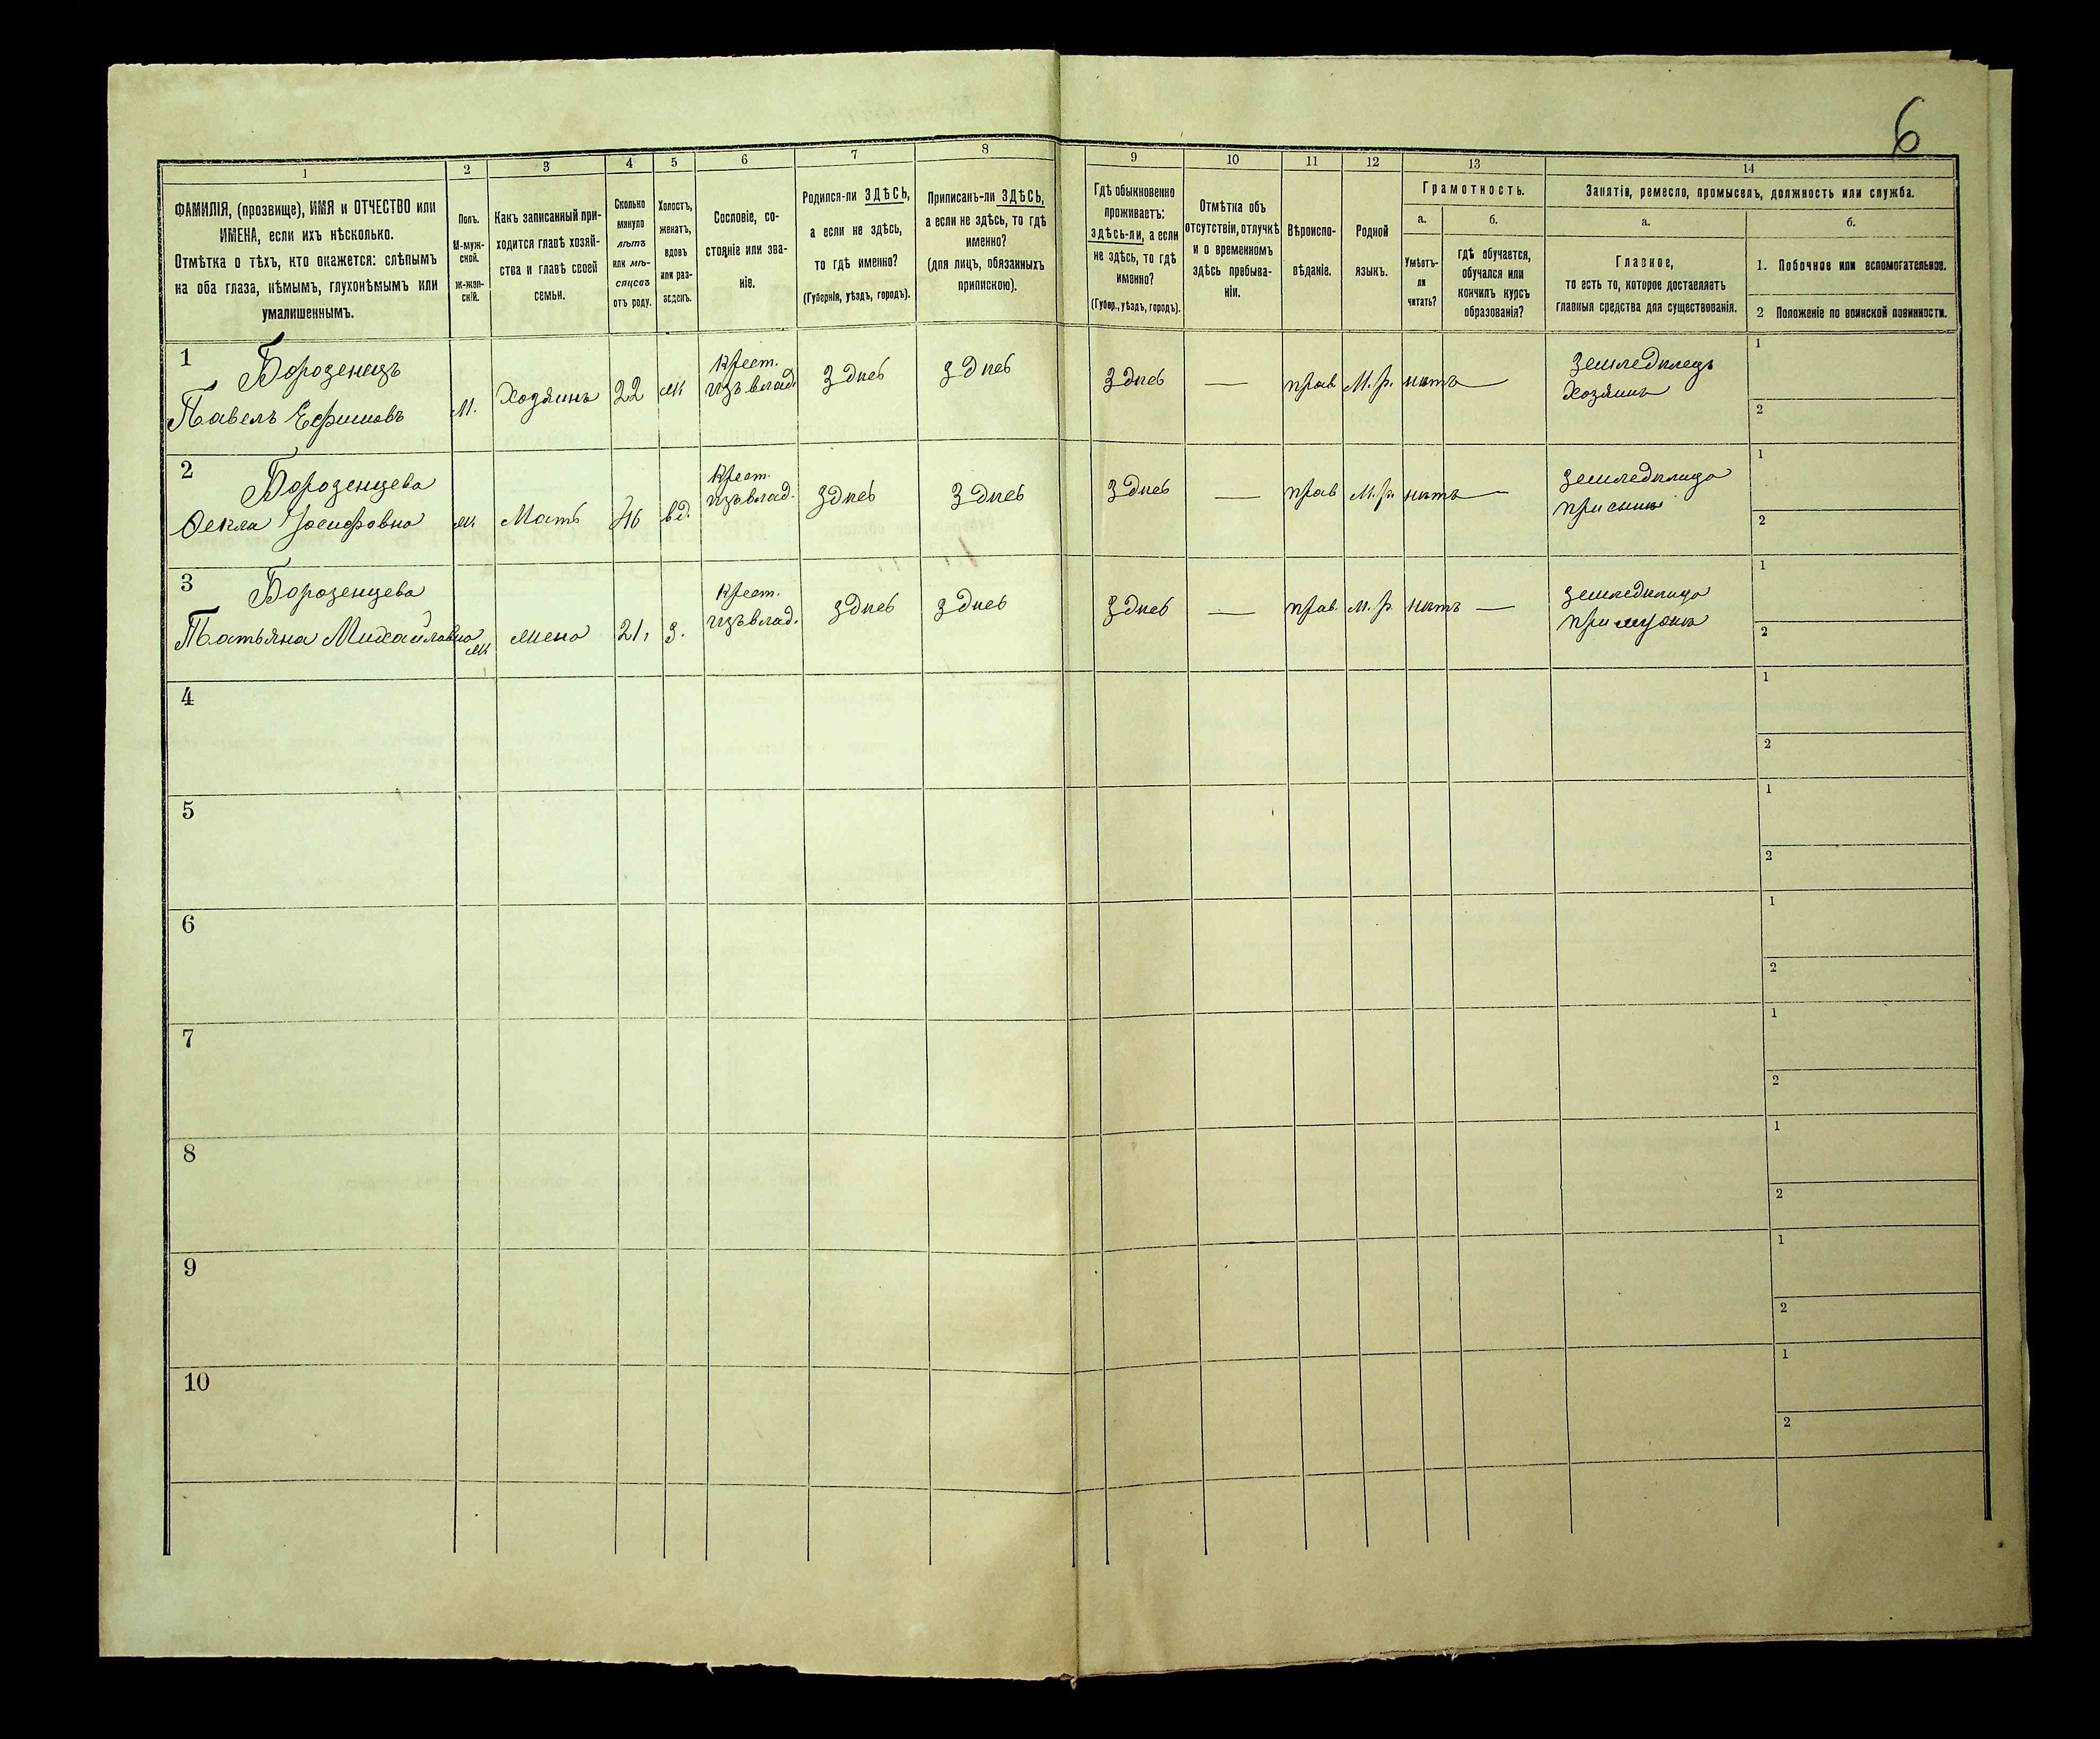 6
1
2
3
4
5
6
7
8
9
10
11
12
13
14
ФАМИЛІЯ, (прозвище), ИМЯ и ОТЧЕСТВО или
ИМЕНА, если ихъ нѣсколько.
Отмѣтка о тѣхъ, кто окажется: слѣпымъ
на оба глаза, нѣмымъ, глухонѣмымъ или
умалишеннымъ.
Полъ.
М-муж-
ской.
ж-жен-
скій.
Какъ записанный при-
ходится главѣ хозяй-
ства и главѣ своей
семьи.
Сколько
минуло
лѣтъ
или мѣ-
сяцевъ
отъ роду.
Холостъ,
женатъ,
вдовъ
или раз-
веденъ.
Сословіе, со-
стояніе или зва-
ніе.
Родился-ли ЗДѢСЬ,
а если не здѣсь,
то гдѣ именно?
(Губернія, уѣздъ, городъ).
Приписанъ-ли ЗДѢСЬ,
а если не здѣсь, то гдѣ
именно?
(для лицъ, обязанныхъ
припискою).
Гдѣ обыкновенно
проживаетъ:
здѣсь-ли, а если
не здѣсь, то гдѣ
именно?
(Губер., уѣздъ, городъ).
Отмѣтка объ
отсутствіи, отлучкѣ
и о временномъ
здѣсь пребыва-
ніи.
Вѣроиспо-
вѣданіе.
Родной
языкъ.
Грамотность.
а.
Умѣетъ-
ли
читать?
б.
гдѣ обучается,
обучался или
кончилъ курсъ
образованія?
Занятіе, ремесло, промыселъ, должность или служба.
а.
Главное,
то есть то, которое доставляетъ
главныя средства для существованія.
б.
1. Побочное или вспомогательное.
2 Положеніе по воинской повинности.
1 Бороденецъ
Павелъ Ефимовъ
м.
Хозяинъ
22
ж
Крест.
изъ влад.
Здесь
Здесь
Здесь
—
прав
М.р.
нѣтъ —
Земледѣлецъ
Хозяинъ
1
2
2 Бороденцева
Фекла Іосифовна
ж
Мать
46
вд.
Крест.
изъ влад.
Здесь
Здесь
Здесь
—
прав
М.р.
нѣтъ —
Земледѣлица
при сынѣ
1
2
3 Бороденцева
Татьяна Михайловна
ж
жена
21
з.
Крест.
изъ влад.
Здесь
Здесь
Здесь
—
прав.
М.р.
нѣтъ —
Земледѣлица
при мужѣ
1
2
4
1
2
5
1
2
6
1
2
7
1
2
8
1
2
9
1
2
10
1
2